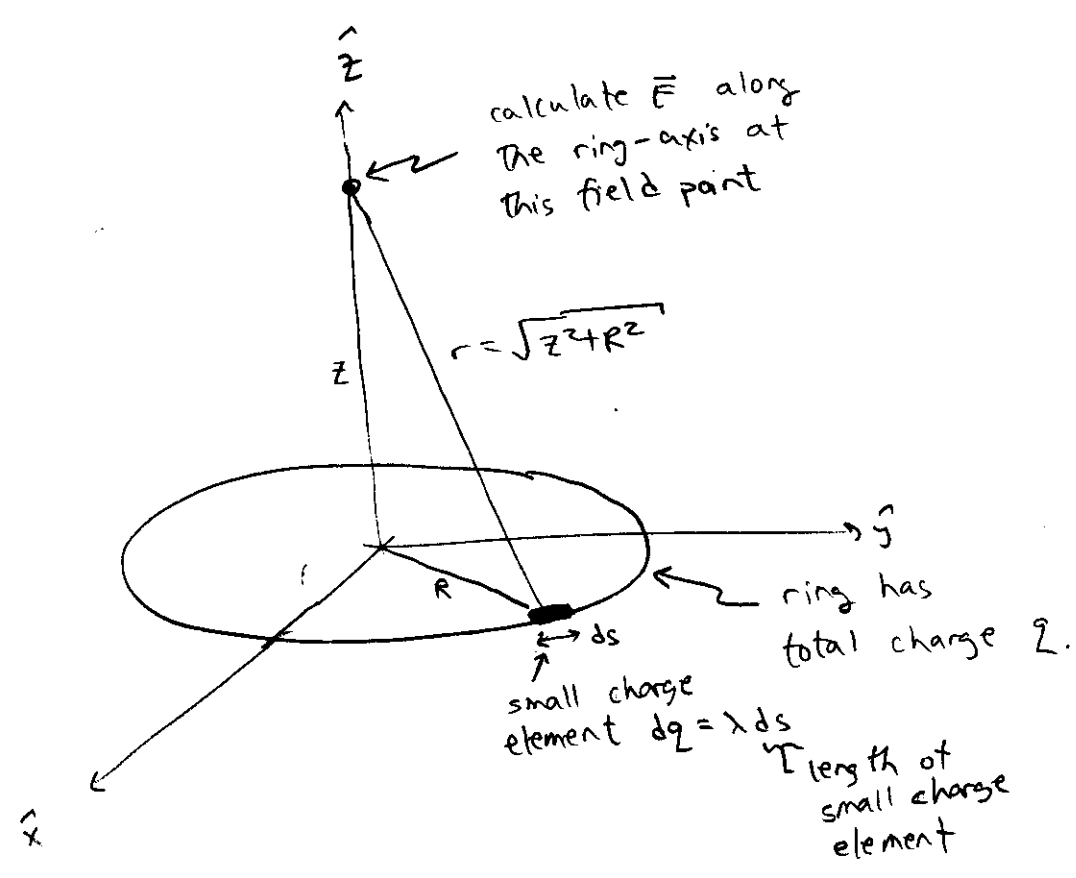 ẑ
calculate E⃗ along
the ring-axis at
this field point
r = √z²+R²
z
ŷ
R
ds
ring has
total charge q.
small charge
element dq = λ ds
length of
small charge
element
x̂